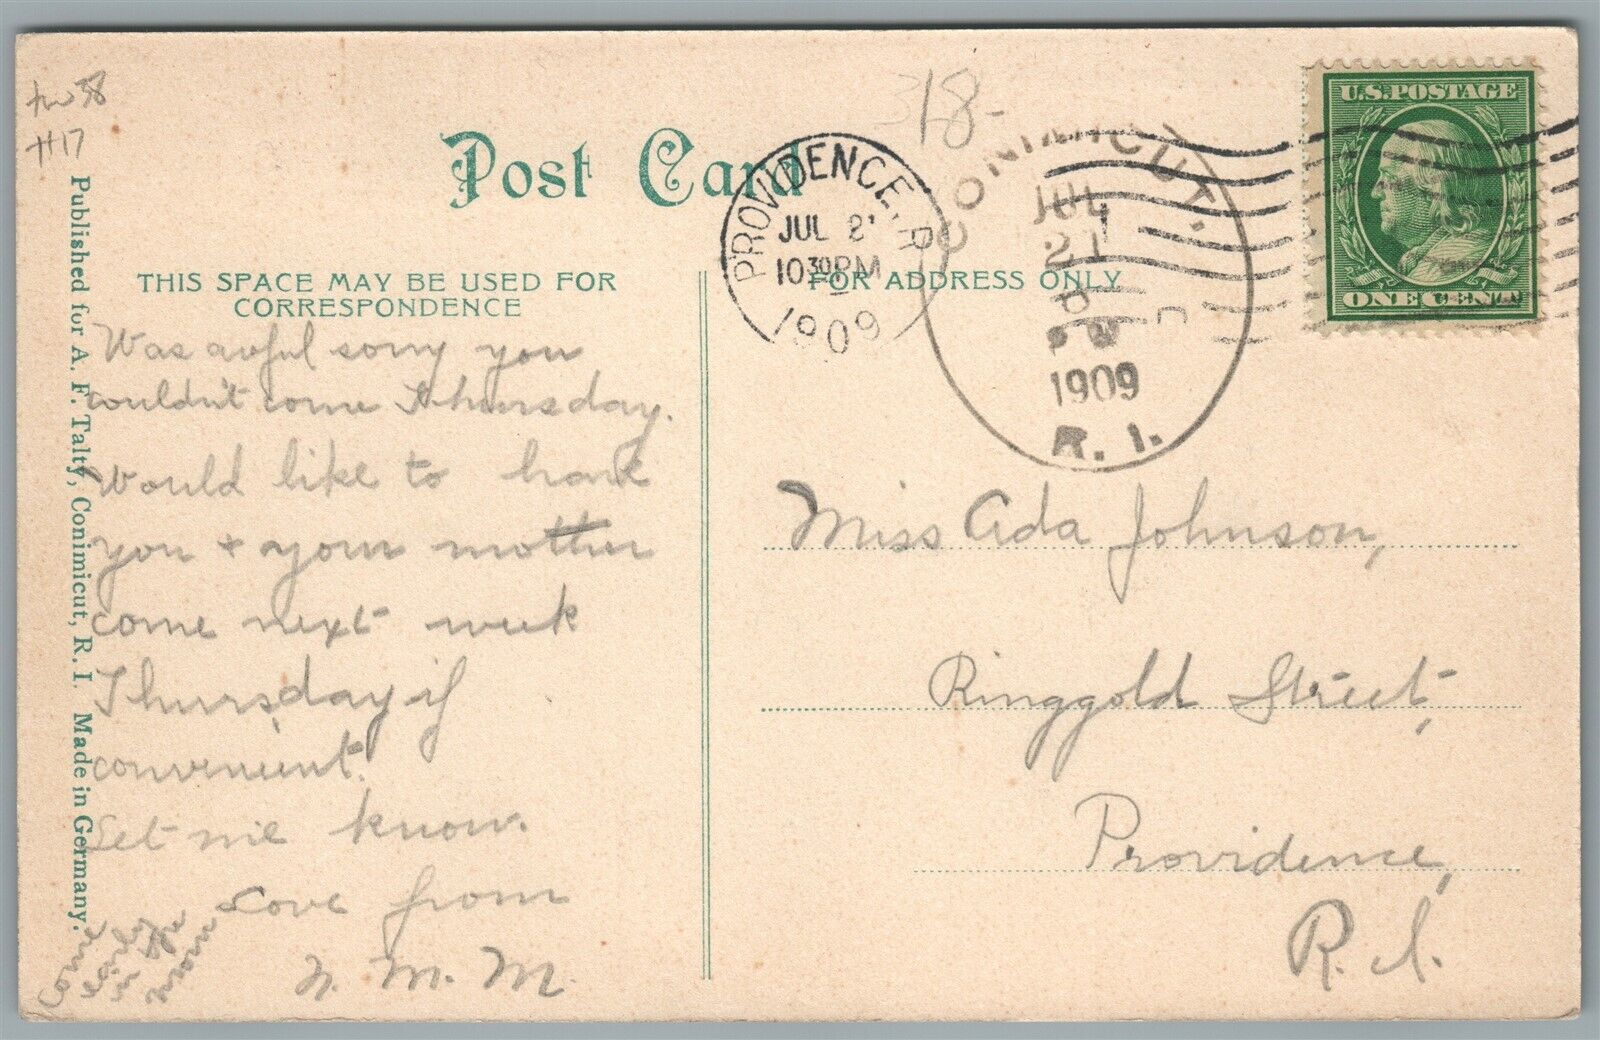 318-
H17
Post Card
THIS SPACE MAY BE USED FOR
CORRESPONDENCE
FOR ADDRESS ONLY
Published for A. F. Talty, Conimicut, R. I. Made in Germany.
PROVIDENCE, R
JUL 21
10 30 PM
1909
CONIMICUT.
JUL
21
P M
1909
R. I.
U.S. POSTAGE
ONE CENT
Was awful sorry you
couldn't come Thursday.
Would like to have
you + your mother
come next week
Thursday if
convenient.
Let me know.
Love from
N. M. M.
Come
early
in the
morn
Miss Ada Johnson,
Ringgold Street,
Providence,
R. I.